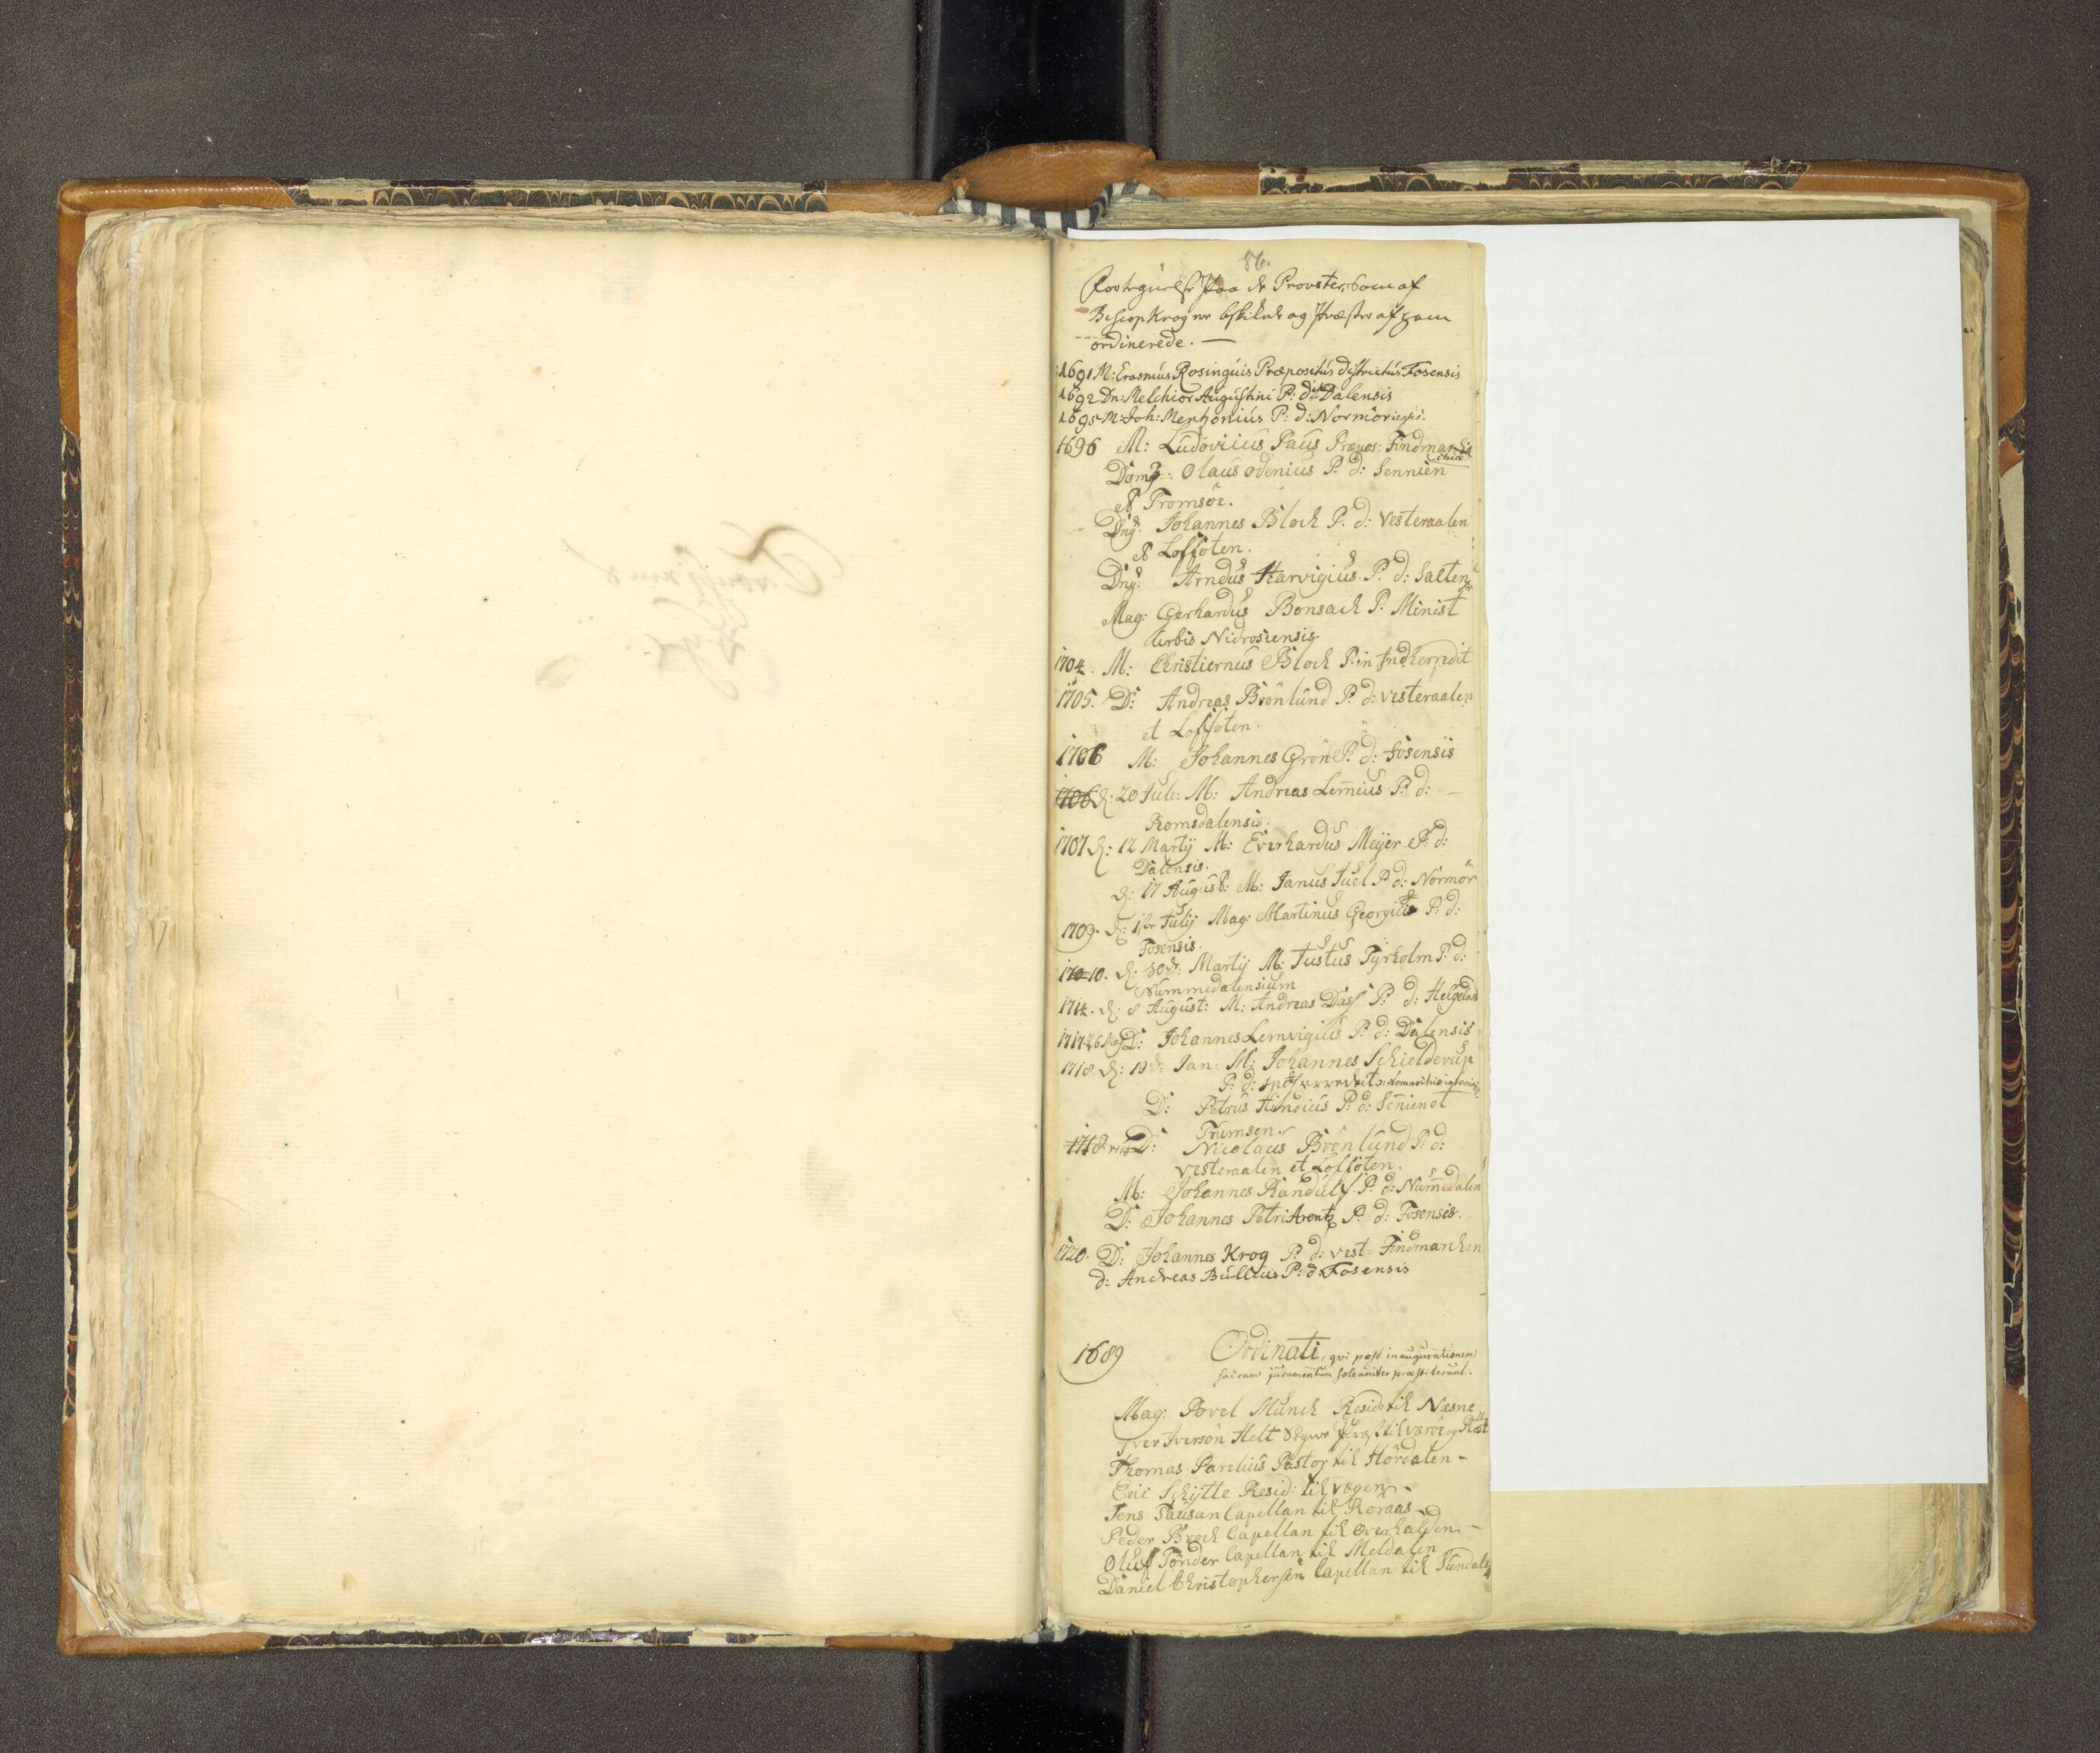 86.
paa de Provster, som af
Biscop Krog er beskikede og Præster af ham
ordinerede. —
1691 M: Erasmus Rosingius Præpositus districtus Fosensis
1692 Dn: Melchior Augustini P: d: Dalensis
1695 M: Joh: Mentzonius P: d: Normöriensi:
1696 M: Ludovicus Paus Præpos: Findmarchiæ
Domg: Olaus Odenius P: d: Sennien
et Tromsöe.
Dng: Johannes Bloch P: d: Vesteraalen
et Loffoten.
Dng: Arndus Harvigius P: d: Salten
Mag: Gerhardus Bonsach P: Minist
Urbis Nidrosiensis
1704. M: Christiernus Bloch P: in Indherridit
1705. D: Andreas Brönlund P: d: Vesteraalen
et Loffoten.
1706 M: Johannes Grön P: d: Fosensis
1706 d: 20 Juli: M: Andreas Lemius P: d:
Romsdalensis.
1707 d: 12 Martij M: Everhardus Meÿer P: d:
Dalensis.
d: 17 August: M: Janus Juel P: d: Normör
1709. d: 1ste Julij Mag: Martinus Georgii P: d:
Fosensis.
1710. d: Martij M: Justus Tyrholm P: d:
Nummedalensium
1714. d: 8 August: M: Andreas Dass P: d: Helgeland
1717 26 Maj D: Johannes Lemvigius P: d: Dalensis
1718 d: 19de Jan: M: Johannes Schielderup
P: d:
D: Petrus Hindius P: d: Señien et
Trumsen.
1718 D: Nicolaus Brönlund P: d:
Vesteraalen et Loffoten.
M: Johannes Randulf P: d: Nuñedalen
D: Johannes Petri Arentz P: d: Fosensis.
1720. D: Johannes Krog P: d: Vest-Findmarchen
d: Andreas Bullius P: d: Fosensis
1689 Ordinati, qvi post inaugurationem
sacram juramentum solenniter præstiterunt.
Mag: Povel Munch Resid: til Næsne
Iver Iversön Helt Sogne Præst til Væröe og Röst
Thomas Parelius Pastor til Hördalen –
Eric Schÿtte Resid: til Vægen –
Jens Pausan Capellan til Röraas –
Peder Broch Capellan til Overhalden –
Oluf Tönder Capellan til Meldalen
Daniel Christophersen Capellan til Sundals